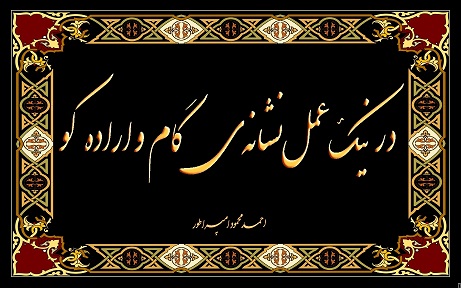 در نیک عمل نشانه‌ی گام و اراده کو
احمد محمود امپراطور